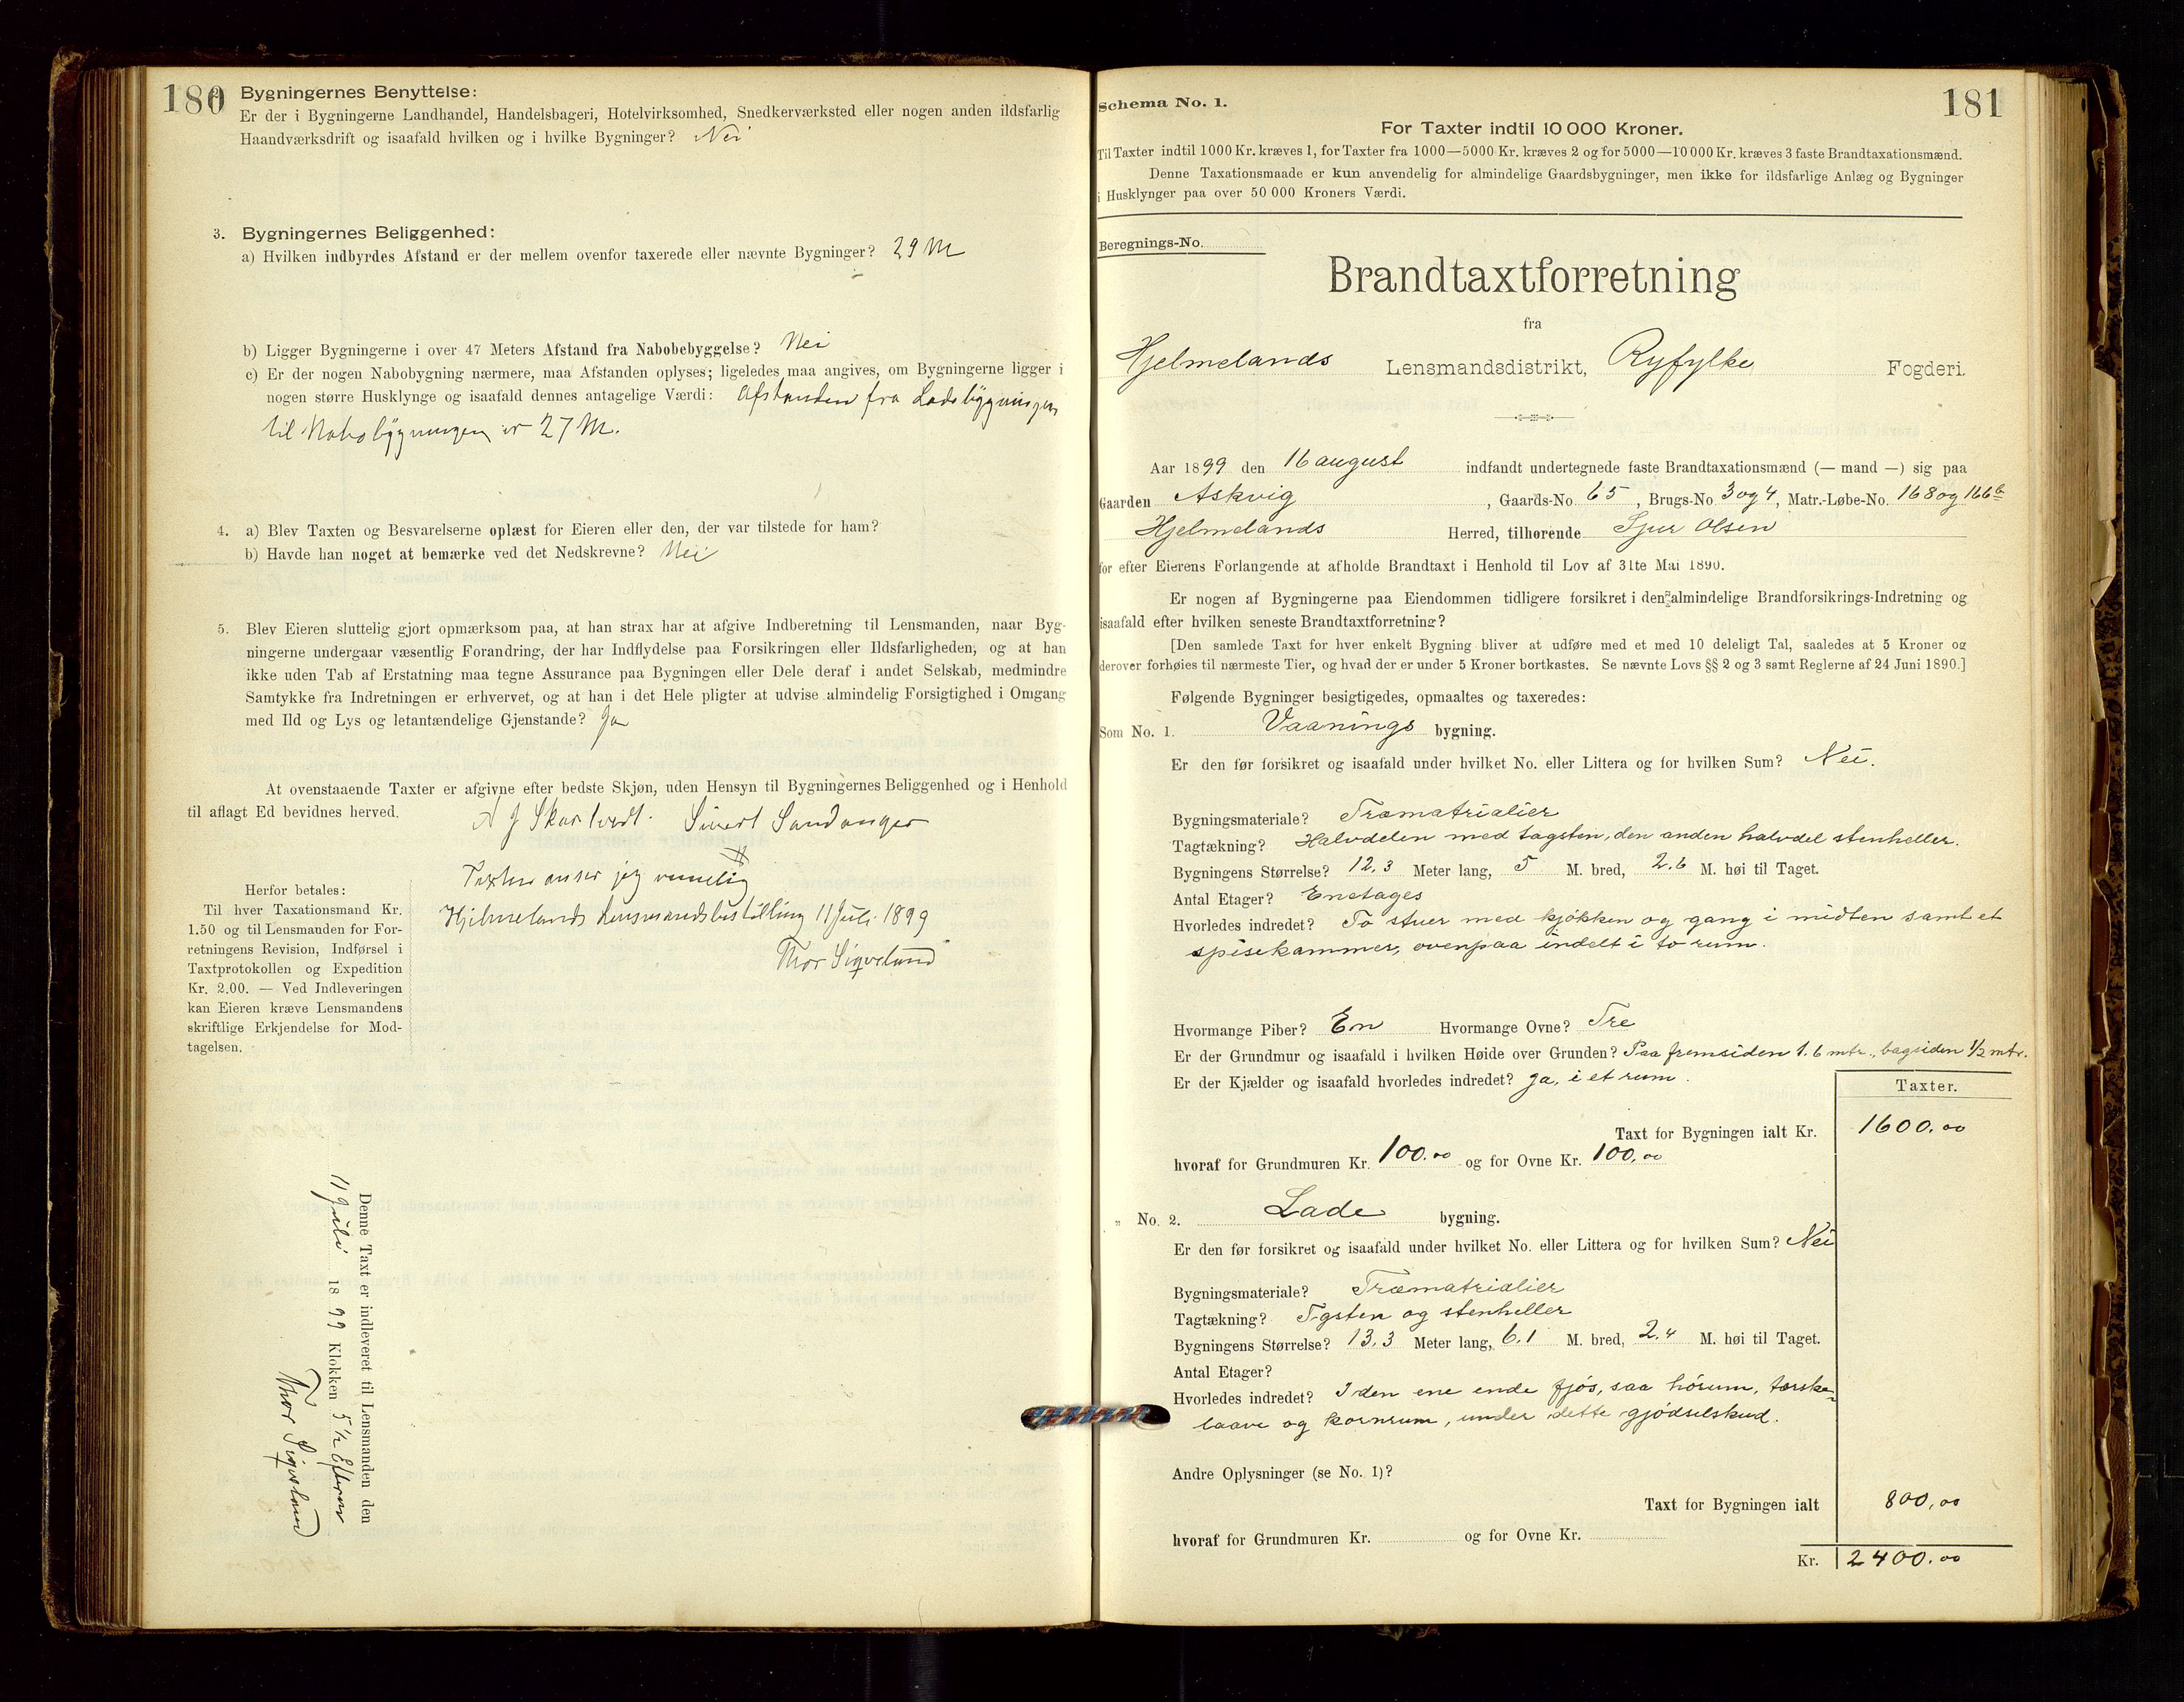 180
2. Bygningernes Benyttelse:
Er der i Bygningerne Landhandel, Handelsbageri, Hotelvirksomhed, Snedkerværksted eller nogen anden ildsfarlig
Haandværksdrift og isaafald hvilken og i hvilke Bygninger? Nei
3. Bygningernes Beliggenhed:
a) Hvilken indbyrdes Afstand er der mellem ovenfor taxerede eller nævnte Bygninger? 29 M
b) Ligger Bygningerne i over 47 Meters Afstand fra Nabobebyggelse? Nei
c) Er der nogen Nabobygning nærmere, maa Afstanden oplyses; ligeledes maa angives, om Bygningerne ligger i
nogen større Husklynge og isaafald dennes antagelige Værdi: Afstanden fra Ladebygningen
til Nabobygningen er 27 M.
4. a) Blev Taxten og Besvarelserne oplæst for Eieren eller den, der var tilstede for ham?
b) Havde han noget at bemærke ved det Nedskrevne? Nei
5. Blev Eieren sluttelig gjort opmærksom paa, at han strax har at afgive Indberetning til Lensmanden, naar Byg-
ningerne undergaar væsentlig Forandring, der har Indflydelse paa Forsikringen eller Ildsfarligheden, og at han
ikke uden Tab af Erstatning maa tegne Assurance paa Bygningen eller Dele deraf i andet Selskab, medmindre
Samtykke fra Indretningen er erhvervet, og at han i det Hele pligter at udvise almindelig Forsigtighed i Omgang
med Ild og Lys og letantændelige Gjenstande? Ja
At ovenstaaende Taxter er afgivne efter bedste Skjøn, uden Hensyn til Bygningernes Beliggenhed og i Henhold
til aflagt Ed bevidnes herved.
A J Skartvedt. Sivert Sandanger
Taxten anser jeg rimelig
Hjelmelands Lensmandsbestilling 11 Juli 1899
Thor Sigveland
Herfor betales:
Til hver Taxationsmand Kr.
1.50 og til Lensmanden for For-
retningens Revision, Indførsel i
Taxtprotokollen og Expedition
Kr. 2.00. — Ved Indleveringen
kan Eieren kræve Lensmandens
skriftlige Erkjendelse for Mod-
tagelsen.
Denne Taxt er indleveret til Lensmanden den
11 Juli 1899 Klokken 5 1/2 Efterm
Thor Sigveland
181
Schema No. 1.
For Taxter indtil 10 000 Kroner.
Til Taxter indtil 1000 Kr. kræves 1, for Taxter fra 1000—5000 Kr. kræves 2 og for 5000—10 000 Kr. kræves 3 faste Brandtaxationsmænd.
Denne Taxationsmaade er kun anvendelig for almindelige Gaardsbygninger, men ikke for ildsfarlige Anlæg og Bygninger
i Husklynger paa over 50 000 Kroners Værdi.
Beregnings-No.
Brandtaxtforretning
fra
Hjelmelands Lensmandsdistrikt, Ryfylke Fogderi.
Aar 1899 den 16 august indfandt undertegnede faste Brandtaxationsmænd (— mand —) sig paa
Gaarden Askvig, Gaards-No. 65, Brugs-No. 3 og 4, Matr.-Løbe-No. 168 og 166 b
Hjelmelands Herred, tilhørende Sjur Olsen
for efter Eierens Forlangende at afholde Brandtaxt i Henhold til Lov af 31te Mai 1890.
Er nogen af Bygningerne paa Eiendommen tidligere forsikret i den almindelige Brandforsikrings-Indretning og
isaafald efter hvilken seneste Brandtaxtforretning?
[Den samlede Taxt for hver enkelt Bygning bliver at udføre med et med 10 deleligt Tal, saaledes at 5 Kroner og
derover forhøies til nærmeste Tier, og hvad der er under 5 Kroner bortkastes. Se nævnte Lovs §§ 2 og 3 samt Reglerne af 24 Juni 1890.]
Følgende Bygninger besigtigedes, opmaaltes og taxeredes:
Som No. 1. Vaanings bygning.
Er den før forsikret og isaafald under hvilket No. eller Littera og for hvilken Sum? Nei.
Bygningsmateriale? Træmatrialier
Tagtækning? Halvdelen med tagsten, den anden halvdel stenheller.
Bygningens Størrelse? 12,3 Meter lang, 5 M. bred, 2,6 M. høi til Taget.
Antal Etager? Enetages
Hvorledes indredet? To stuer med kjøkken og gang i midten samt et
spisekammer, ovenpaa indelt i to rum.
Hvormange Piber? En Hvormange Ovne? Tre
Er der Grundmur og isaafald i hvilken Høide over Grunden? Paa fremsiden 1.6 mtr., bagsiden 1/2 mtr.
Er der Kjælder og isaafald hvorledes indredet? Ja, i et rum.
Taxter.
Taxt for Bygningen ialt Kr. 1600.00
hvoraf for Grundmuren Kr. 100.00 og for Ovne Kr. 100,00
" No. 2. Lade bygning.
Er den før forsikret og isaafald under hvilket No. eller Littera og for hvilken Sum? Nei
Bygningsmateriale? Træmatrialier
Tagtækning? Tgsten og stenheller
Bygningens Størrelse? 13,3 Meter lang, 6,1 M. bred, 2,4 M. høi til Taget.
Antal Etager?
Hvorledes indredet? I den ene ende fjøs, saa hørum, tærske-
laave og kornrum, under dette gjødselskud.
Andre Oplysninger (se No. 1)?
Taxt for Bygningen ialt 800,00
hvoraf for Grundmuren Kr. og for Ovne Kr.
Kr. 2400.00